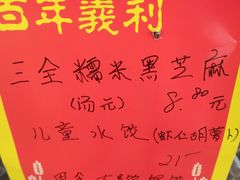 百年義利
三全糯米黑芝麻
(汤元) 8.80元
儿童水饺(虾仁胡萝卜)
21一